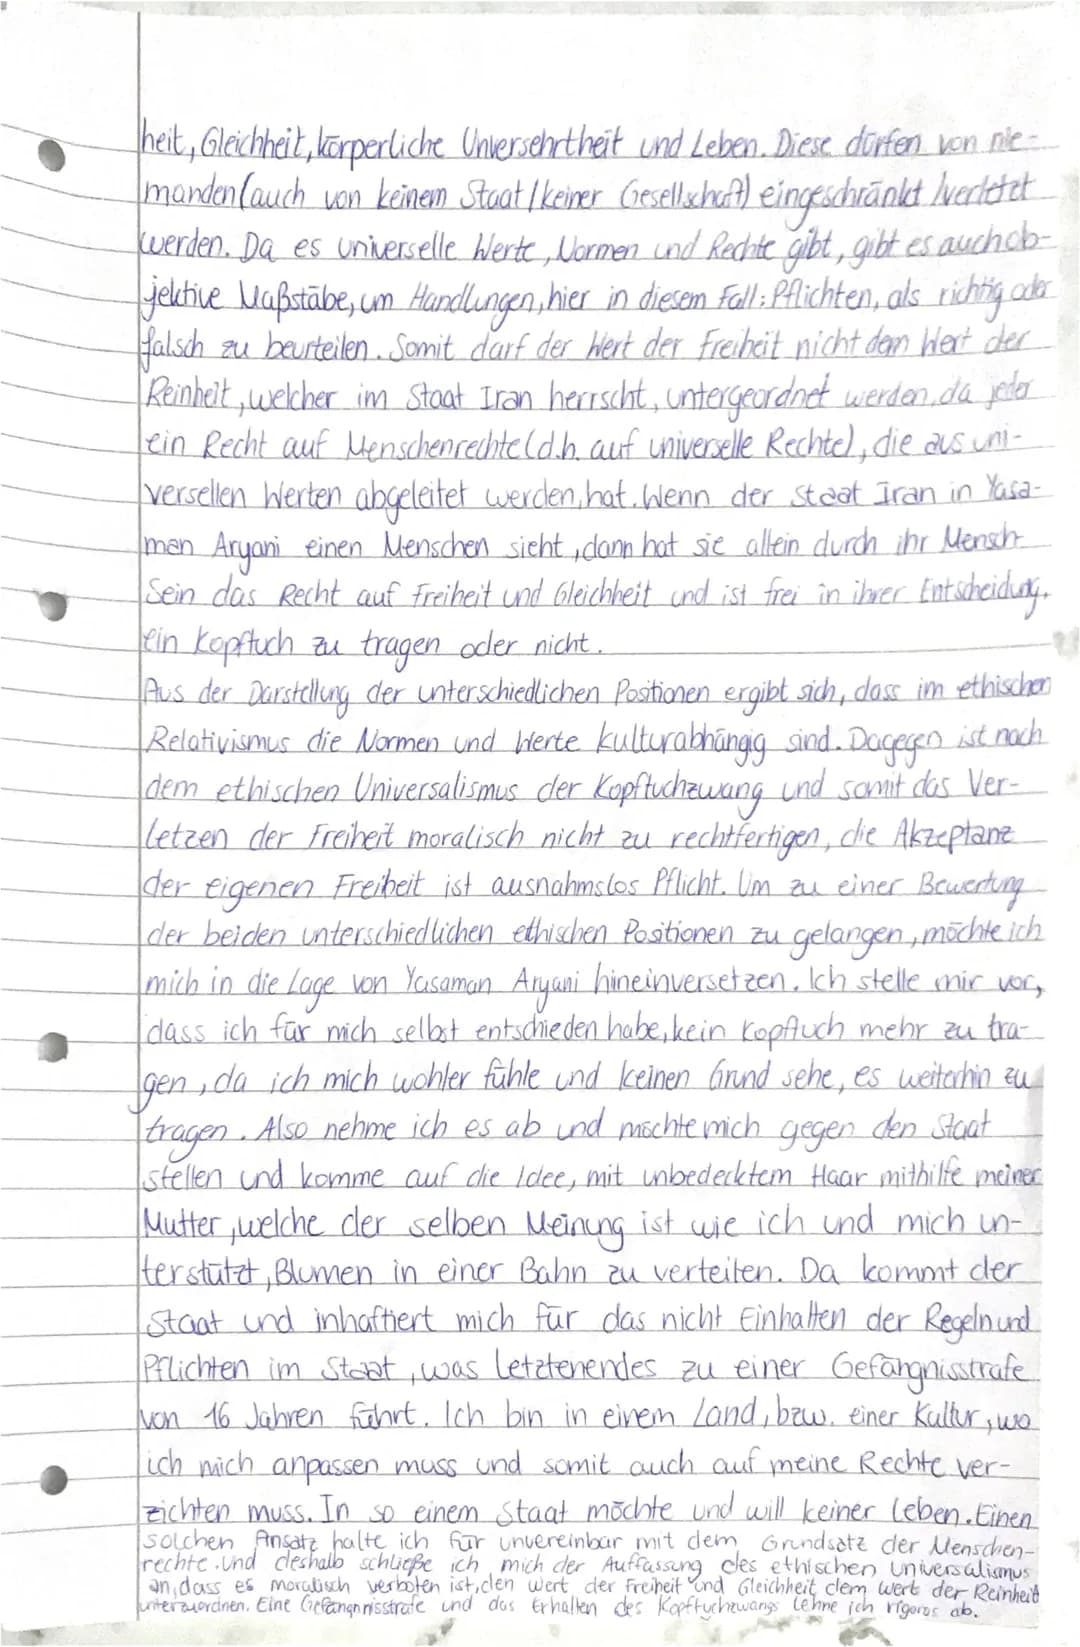 heit, Gleichheit, körperliche Unversehrtheit und Leben. Diese dürfen von nie-
manden (auch von keinem Staat / keiner Gesellschaft) eingeschränkt /verletzt
werden. Da es universelle Werte, Normen und Rechte gibt, gibt es auch ob-
jektive Maßstäbe, um Handlungen, hier in diesem Fall: Pflichten, als richtig oder
falsch zu beurteilen. Somit darf der Wert der Freiheit nicht dem Wert der
Reinheit, welcher im Staat Iran herrscht, untergeordnet werden, da jeder
ein Recht auf Menschenrechte (d.h. auf universelle Rechte), die aus uni-
versellen Werten abgeleitet werden, hat. Wenn der Staat Iran in Yasa-
man Aryani einen Menschen sieht, dann hat sie allein durch ihr Mensch
Sein das Recht auf Freiheit und Gleichheit und ist frei in ihrer Entscheidung,
ein Kopftuch zu tragen oder nicht.
Aus der Darstellung der unterschiedlichen Positionen ergibt sich, dass im ethischen
Relativismus die Normen und Werte kulturabhängig sind. Dagegen ist nach
dem ethischen Universalismus der Kopftuchzwang und somit das Ver-
letzen der Freiheit moralisch nicht zu rechtfertigen, die Akzeptanz
der eigenen Freiheit ist ausnahmslos Pflicht. Um zu einer Bewertung
der beiden unterschiedlichen ethischen Positionen zu gelangen, möchte ich
mich in die Lage von Yasaman Aryani hineinversetzen. Ich stelle mir vor,
dass ich für mich selbst entschieden habe, kein Kopftuch mehr zu tra-
gen, da ich mich wohler fühle und keinen Grund sehe, es weiterhin zu
tragen. Also nehme ich es ab und möchte mich gegen den Staat
stellen und komme auf die Idee, mit unbedecktem Haar mithilfe meiner
Mutter, welche der selben Meinung ist wie ich und mich un-
terstützt, Blumen in einer Bahn zu verteilen. Da kommt der
Staat und inhaftiert mich für das nicht Einhalten der Regeln und
Pflichten im Staat, was letztenendes zu einer Gefängnisstrafe
von 16 Jahren führt. Ich bin in einem Land, bzw. einer Kultur, wo
ich mich anpassen muss und somit auch auf meine Rechte ver-
zichten muss. In so einem Staat möchte und will keiner leben. Einen
solchen Ansatz halte ich für unvereinbar mit dem Grundsatz der Menschen-
rechte. Und deshalb schließe ich mich der Auffassung des ethischen Universalismus
an, dass es moralisch verboten ist, den Wert der Freiheit und Gleichheit dem Wert der Reinheit
unterzuordnen. Eine Gefängnisstrafe und das Erhalten des Kopftuchzwangs lehne ich rigoros ab.